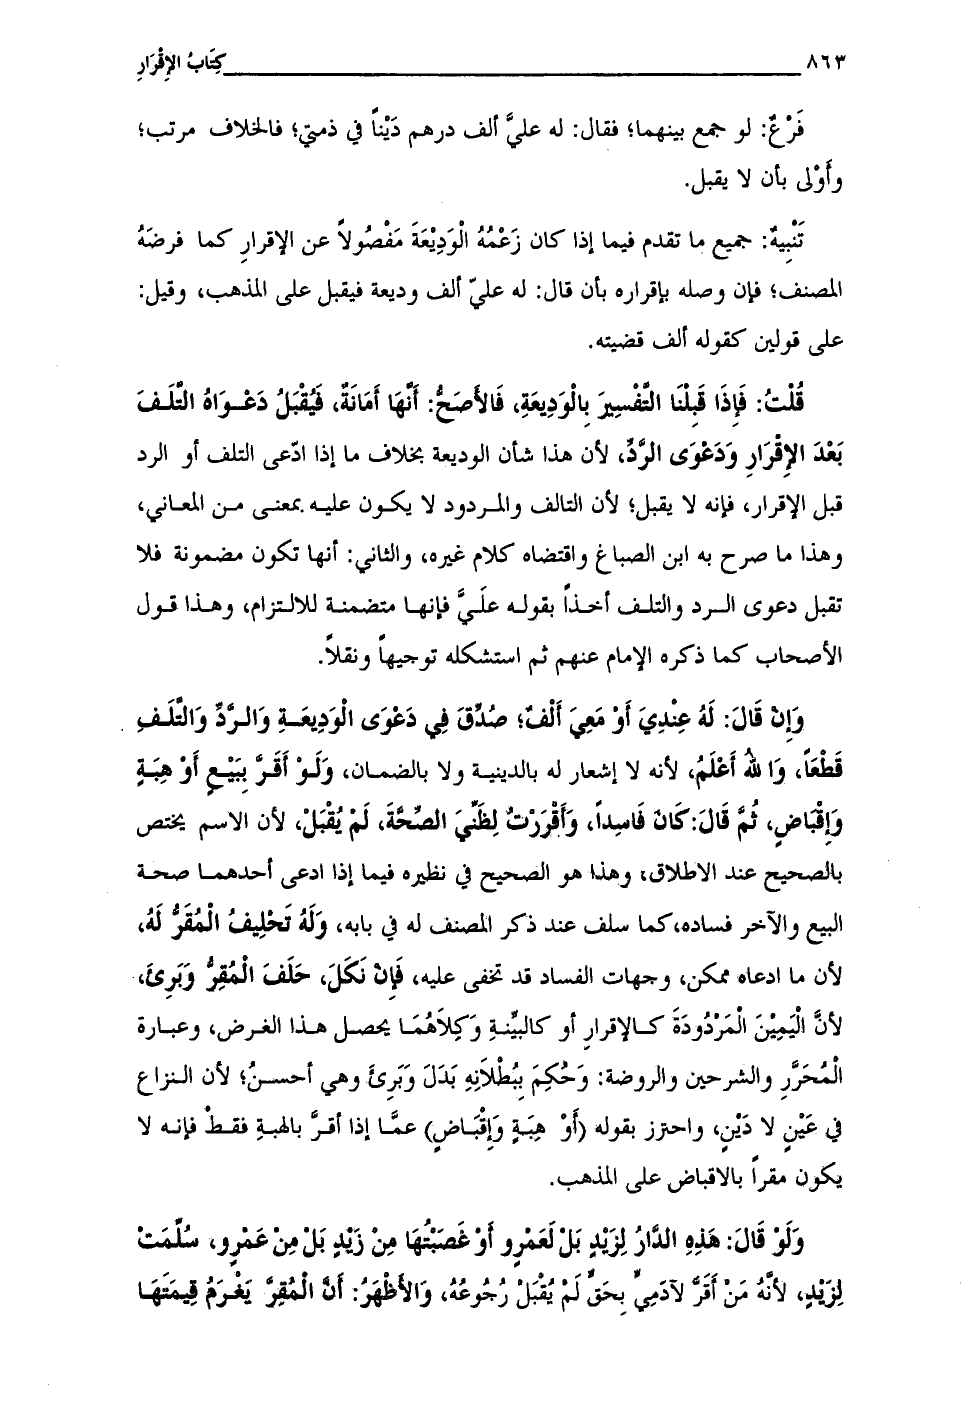 ٨٦٣ كِتَابُ الإِقْرَارِ
فَرْعٌ: لو جمع بينهما؛ فقال: له عليَّ ألف درهم دَيْناً في ذمتي؛ فالخلاف مرتب؛
وأَوْلى بأن لا يقبل.
تَنْبِيهٌ: جميع ما تقدم فيما إذا كان زَعْمُهُ الْوَدِيْعَةَ مَفْصُولاً عن الإقرارِ كما فرضَهُ
المصنف؛ فإن وصله بإقراره بأن قال: له عليّ ألف وديعة فيقبل على المذهب، وقيل:
على قولين كقوله ألف قضيته.
قُلْتُ: فَإِذَا قَبِلْنَا التَّفْسِيرَ بِالْوَدِيعَةِ، فَالأَصَحُّ: أَنَّهَا أَمَانَةٌ، فَيُقْبَلُ دَعْوَاهُ التَّلَفَ
بَعْدَ الإِقْرَارِ وَدَعْوَى الرَّدِّ، لأن هذا شأن الوديعة بخلاف ما إذا ادّعى التلف أو الرد
قبل الإقرار، فإنه لا يقبل؛ لأن التالف والمردود لا يكون عليه بمعنى من المعاني،
وهذا ما صرح به ابن الصباغ واقتضاه كلام غيره، والثاني: أنها تكون مضمونة فلا
تقبل دعوى الرد والتلف أخذاً بقوله علَيَّ فإنها متضمنة للالتزام، وهذا قول
الأصحاب كما ذكره الإمام عنهم ثم استشكله توجيهاً ونقلاً.
وَإِنْ قَالَ: لَهُ عِنْدِيَ أَوْ مَعِيَ أَلْفٌ؛ صُدِّقَ فِي دَعْوَى الْوَدِيعَةِ وَالرَّدِّ وَالتَّلَفِ
قَطْعَاً، وَا للهُ أَعْلَمُ، لأنه لا إشعار له بالدينية ولا بالضمان، وَلَوْ أَقَرَّ بِبَيْعٍ أَوْ هِبَةٍ
وَإِقْبَاضٍ، ثُمَّ قَالَ: كَانَ فَاسِداً، وَأَقْرَرْتُ لِظَنِّيَ الصِّحَّةَ، لَمْ يُقْبَلْ، لأن الاسم يختص
بالصحيح عند الاطلاق، وهذا هو الصحيح في نظيره فيما إذا ادعى أحدهما صحة
البيع والآخر فساده، كما سلف عند ذكر المصنف له في بابه، وَلَهُ تَحْلِيفُ الْمُقَرُّ لَهُ،
لأن ما ادعاه ممكن، وجهات الفساد قد تخفى عليه، فَإِنْ نَكَلَ، حَلَفَ الْمُقِرُّ وَبَرِئَ،
لأنَّ الْيَمِيْنَ الْمَرْدُودَةَ كالإقرارِ أو كالبيِّنةِ وَكِلَاهُمَا يحصل هذا الغرض، وعبارة
الْمُحَرَّرِ والشرحين والروضة: وَحُكِمَ بِبُطْلَانِهِ بَدَلَ وَبَرِئَ وهي أحسنُ؛ لأن النزاع
في عَيْنٍ لا دَيْنٍ، واحترز بقوله (أَوْ هِبَةٍ وَإِقْبَاضٍ) عمَّا إذا أقرَّ بالهبةِ فقطْ فإنه لا
يكون مقراً بالاقباض على المذهب.
وَلَوْ قَالَ: هَذِهِ الدَّارُ لِزَيْدٍ بَلْ لَعَمْرٍو أَوْ غَصَبْتُهَا مِنْ زَيْدٍ بَلْ مِنْ عَمْرٍو، سُلِّمَتْ
لِزَيْدٍ، لأَنَّهُ مَنْ أَقَرَّ لآدَمِيٍّ بِحَقٍّ لَمْ يُقْبَلْ رُجُوعُهُ، وَالأَظْهَرُ: أَنَّ الْمُقِرَّ يَغْرَمُ قِيمَتَهَا